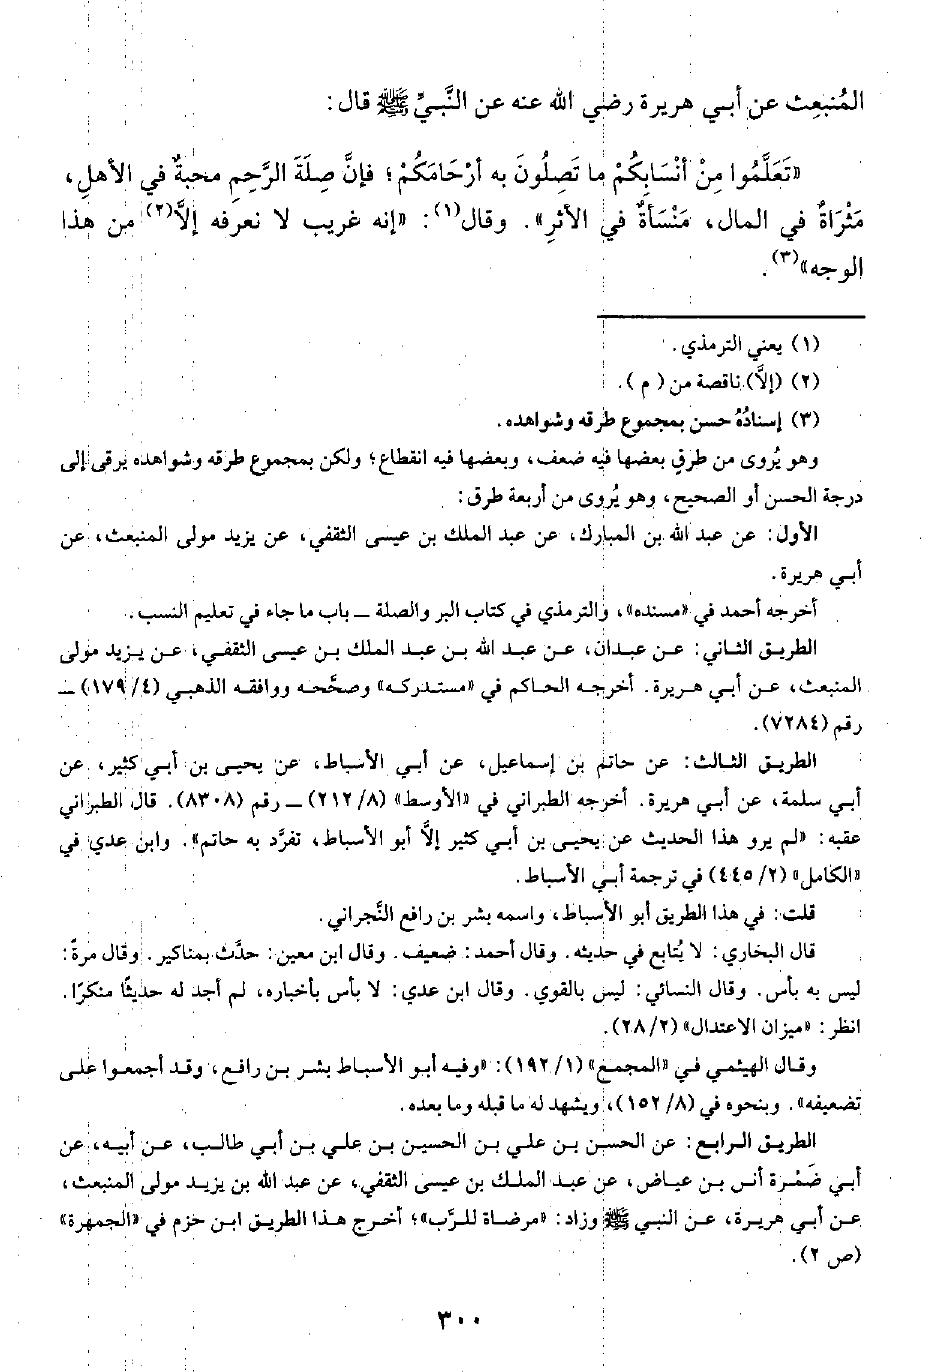 المُنبعِث عن أبي هريرة رضي الله عنه عن النَّبيِّ ﷺ قال:
«تَعَلَّمُوا مِنْ أنْسَابِكُمْ ما تَصِلُونَ به أرْحَامَكُمْ؛ فإنَّ صِلَةَ الرَّحِمِ محبةٌ في الأهلِ،
مَثْرَاةٌ في المال، مَنْسَأةٌ في الأثرِ». وقال(١): «إنه غريب لا نعرفه إلَّا(٢) من هذا
الوجه»(٣).
(١) يعني الترمذي.
(٢) (إلَّا) ناقصة من ( م ).
(٣) إسنادُهُ حسن بمجموع طرقه وشواهده.
وهو يُروى من طرقٍ بعضها فيه ضعف، وبعضها فيه انقطاع؛ ولكن بمجموع طرقه وشواهده يرقى إلى
درجة الحسن أو الصحيح، وهو يُروى من أربعة طرق:
الأول: عن عبد الله بن المبارك، عن عبد الملك بن عيسى الثقفي، عن يزيد مولى المنبعث، عن
أبي هريرة.
أخرجه أحمد في «مسنده»، والترمذي في كتاب البر والصلة ــ باب ما جاء في تعليم النسب.
الطريق الثاني: عن عبدان، عن عبد الله بن عبد الملك بن عيسى الثقفي، عن يزيد مولى
المنبعث، عن أبي هريرة. أخرجه الحاكم في «مستدركه» وصحَّحه ووافقه الذهبي (٤/ ١٧٩) ــ
رقم (٧٢٨٤).
الطريق الثالث: عن حاتم بن إسماعيل، عن أبي الأسباط، عن يحيى بن أبي كثير، عن
أبي سلمة، عن أبي هريرة. أخرجه الطبراني في «الأوسط» (٨/ ٢١٢) ــ رقم (٨٣٠٨). قال الطبراني
عقبه: «لم يرو هذا الحديث عن يحيى بن أبي كثير إلَّا أبو الأسباط، تفرَّد به حاتم». وابن عدي في
«الكامل» (٢/ ٤٤٥) في ترجمة أبي الأسباط.
قلت: في هذا الطريق أبو الأسباط، واسمه بشر بن رافع النَّجراني.
قال البخاري: لا يُتابع في حديثه. وقال أحمد: ضعيف. وقال ابن معين: حدَّث بمناكير. وقال مرةً:
ليس به بأس. وقال النسائي: ليس بالقوي. وقال ابن عدي: لا بأس بأخباره، لم أجد له حديثًا منكرًا.
انظر: «ميزان الاعتدال» (٢/ ٢٨).
وقال الهيثمي في «المجمع» (١/ ١٩٢): «وفيه أبو الأسباط بشر بن رافع، وقد أجمعوا على
تضعيفه». وبنحوه في (٨/ ١٥٢)، ويشهد له ما قبله وما بعده.
الطريق الرابع: عن الحسن بن علي بن الحسين بن علي بن أبي طالب، عن أبيه، عن
أبي ضَمْرة أنس بن عياض، عن عبد الملك بن عيسى الثقفي، عن عبد الله بن يزيد مولى المنبعث،
عن أبي هريرة، عن النبي ﷺ وزاد: «مرضاة للرَّب»؛ أخرج هذا الطريق ابن حزم في «الجمهرة»
(ص ٢).
٣٠٠